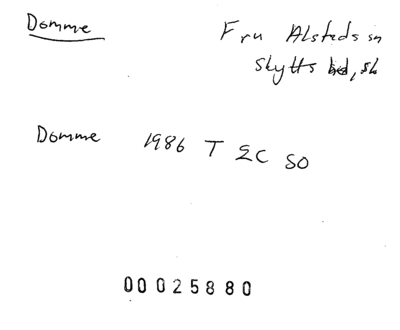 Domme
Fru Alsteds sn
Skytts hd, Sk
Domme 1986 T ΣC SO
00 025880